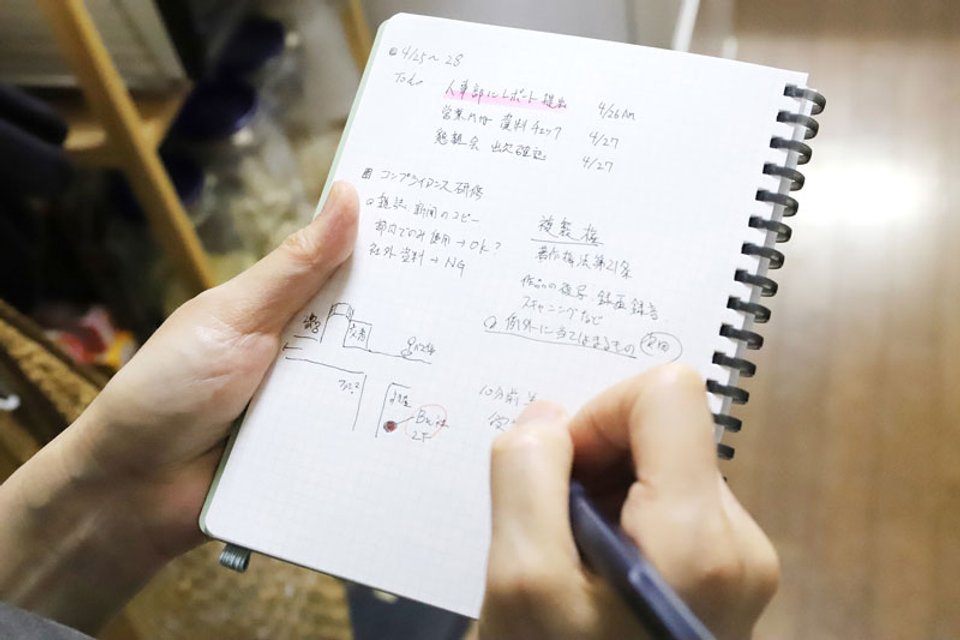 4/25〜28
人事部にレポート提出 4/26 AM
資料チェック 4/27
懇親会 出欠確認 4/27
コンプライアンス研修
雑誌 新聞のコピー
部内でのみ使用→OK?
社外資料→NG
複製権
著作権法第21条
作品の複写 録画 録音
スキャニングなど
例外に当てはまるもの
交番
バス停
B社
2F
10分前